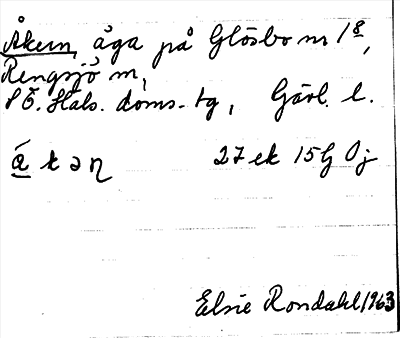 Åkern, åga på Glösbo nr 1⁸,
Rengsjö sn,
S Ö. Häls. doms. tg, Gävl. l.
å k ə ɳ 27 ek 15G Öj
Elsie Rondahl 1963